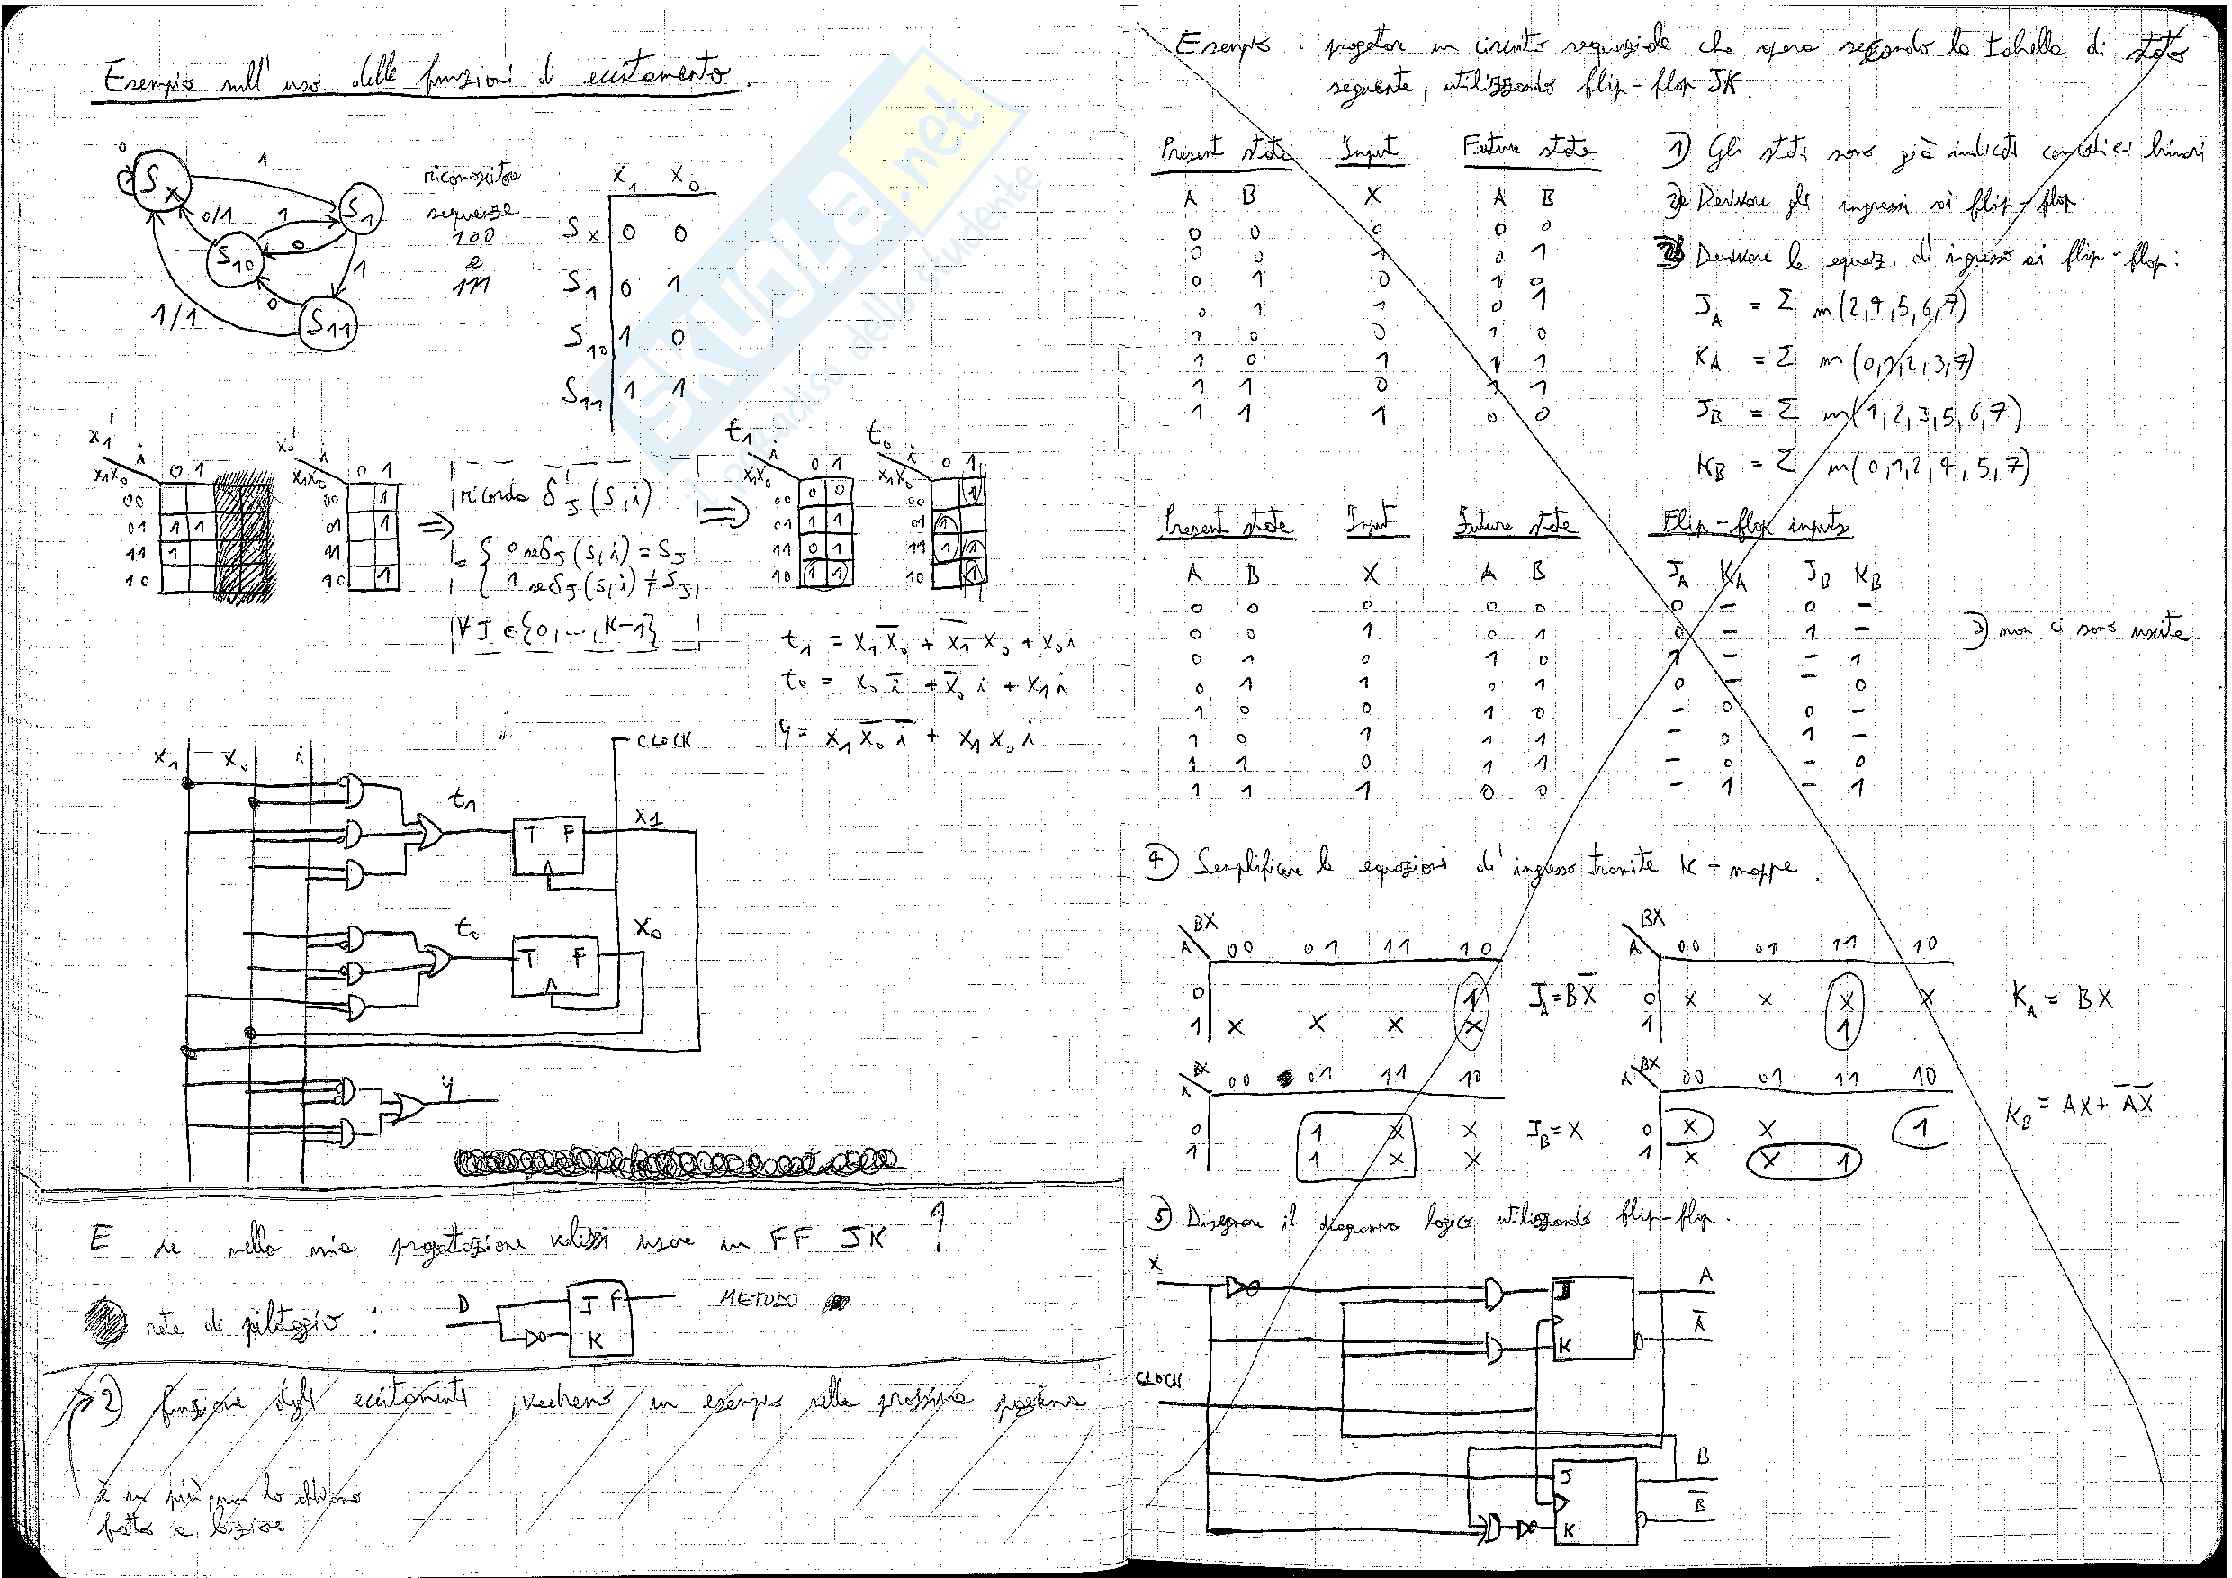 Esempio sull'uso delle funzioni di eccitamento.
0
Sx
1
S1
0/1
1
0
S10
1
0
S11
1/1
riconoscitore
sequenze
100
e
111
X1 X0
Sx 0 0
S1 0 1
S10 1 0
S11 1 1
X1' i
X1X0 0 1
00
01 1 1
11 1
10
X0' i
X1X0 0 1
00 1
01 1
11
10 1
⇒
ricorda δ'J (S,i)
{ 0 se δJ(s,i) = SJ
{ 1 se δJ(s,i) ≠ SJ
∀ J ∈ {0, ..., K-1}
⇒
t1 i
X1X0 0 1
00 0 0
01 1 1
11 0 1
10 1 1
t0 i
X1X0 0 1
00 1
01 1
11 1 1
10 1
t1 = X1X̅0 + X̅1 X0 + X0 i
t0 = X0 i̅ + X̅0 i + X1 i
y = X1 X̅0 i̅ + X1 X0 i
X1 X0 i
CLOCK
t1
T F
X1
t0
T F
X0
y
E se nella mia progettazione volessi usare un FF JK ?
rete di pilotaggio :
D
J F
K
METODO
2) funzione degli eccitamenti vedremo un esempio nella prossima pagina
fatto a lezione
Esempio : progettare un circuito sequenziale che opera secondo la tabella di stato
seguente, utilizzando flip-flop JK.
Present state Input Future state
A B X A B
0 0 0 0 0
0 0 1 0 1
0 1 0 1 0
0 1 1 0 1
1 0 0 1 0
1 0 1 1 1
1 1 0 1 1
1 1 1 0 0
1) Gli stati sono già indicati con codici binari
2) Derivare gli ingressi ai flip-flop
Derivare le equaz. di ingresso ai flip-flop:
JA = Σ m(2,4,5,6,7)
KA = Σ m(0,1,2,3,7)
JB = Σ m(1,2,3,5,6,7)
KB = Σ m(0,1,2,4,5,7)
Present state Input Future state Flip-flop inputs
A B X A B JA KA JB KB
0 0 0 0 0 0 - 0 -
0 0 1 0 1 0 - 1 -
0 1 0 1 0 1 - - 1
0 1 1 0 1 0 - - 0
1 0 0 1 0 - 0 0 -
1 0 1 1 1 - 0 1 -
1 1 0 1 1 - 0 - 0
1 1 1 0 0 - 1 - 1
3) non ci sono uscite
4) Semplificare le equazioni di ingresso tramite K-mappe.
BX
A 00 01 11 10
0 1
1 X X X X
JA = BX̅
BX
A 00 01 11 10
0 X X X X
1 1
KA = BX
BX
A 00 01 11 10
0 1 X X
1 1 X X
JB = X
BX
A 00 01 11 10
0 X X 1
1 X X 1
KB = AX + A̅X̅
5) Disegnare il diagramma logico utilizzando flip-flop.
X
J
K
A
A̅
CLOCK
J
K
B
B̅
SKUOLA.net
il paradiso dello studente